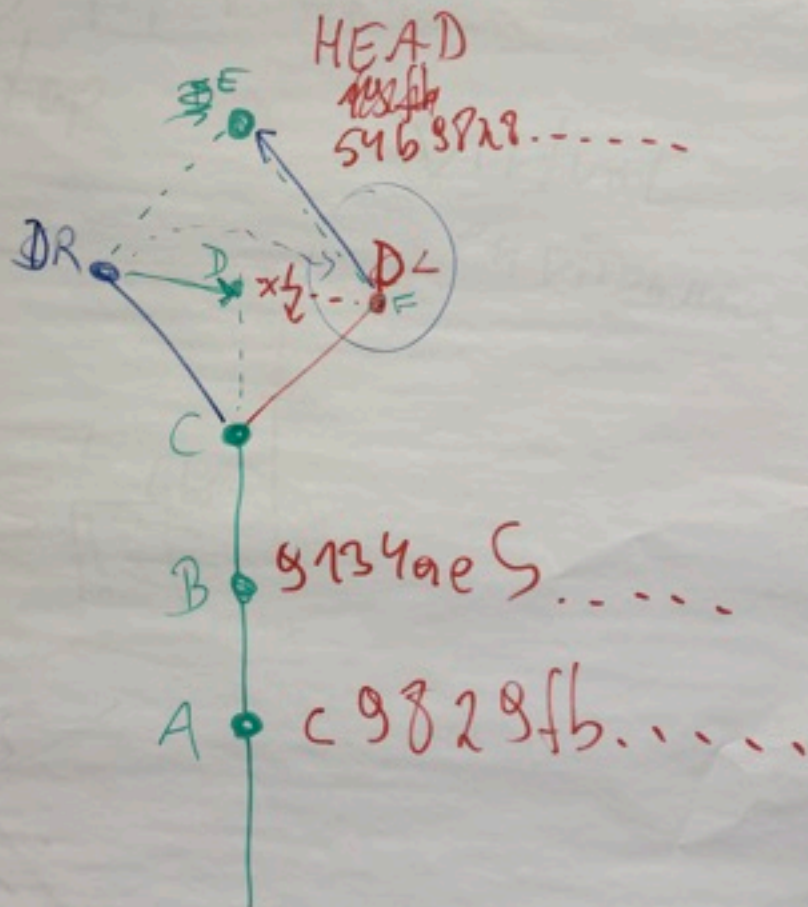 HEAD
E
54b9828.......
DR
D
D<
F
C
B 9134aeS......
A c9829fb......